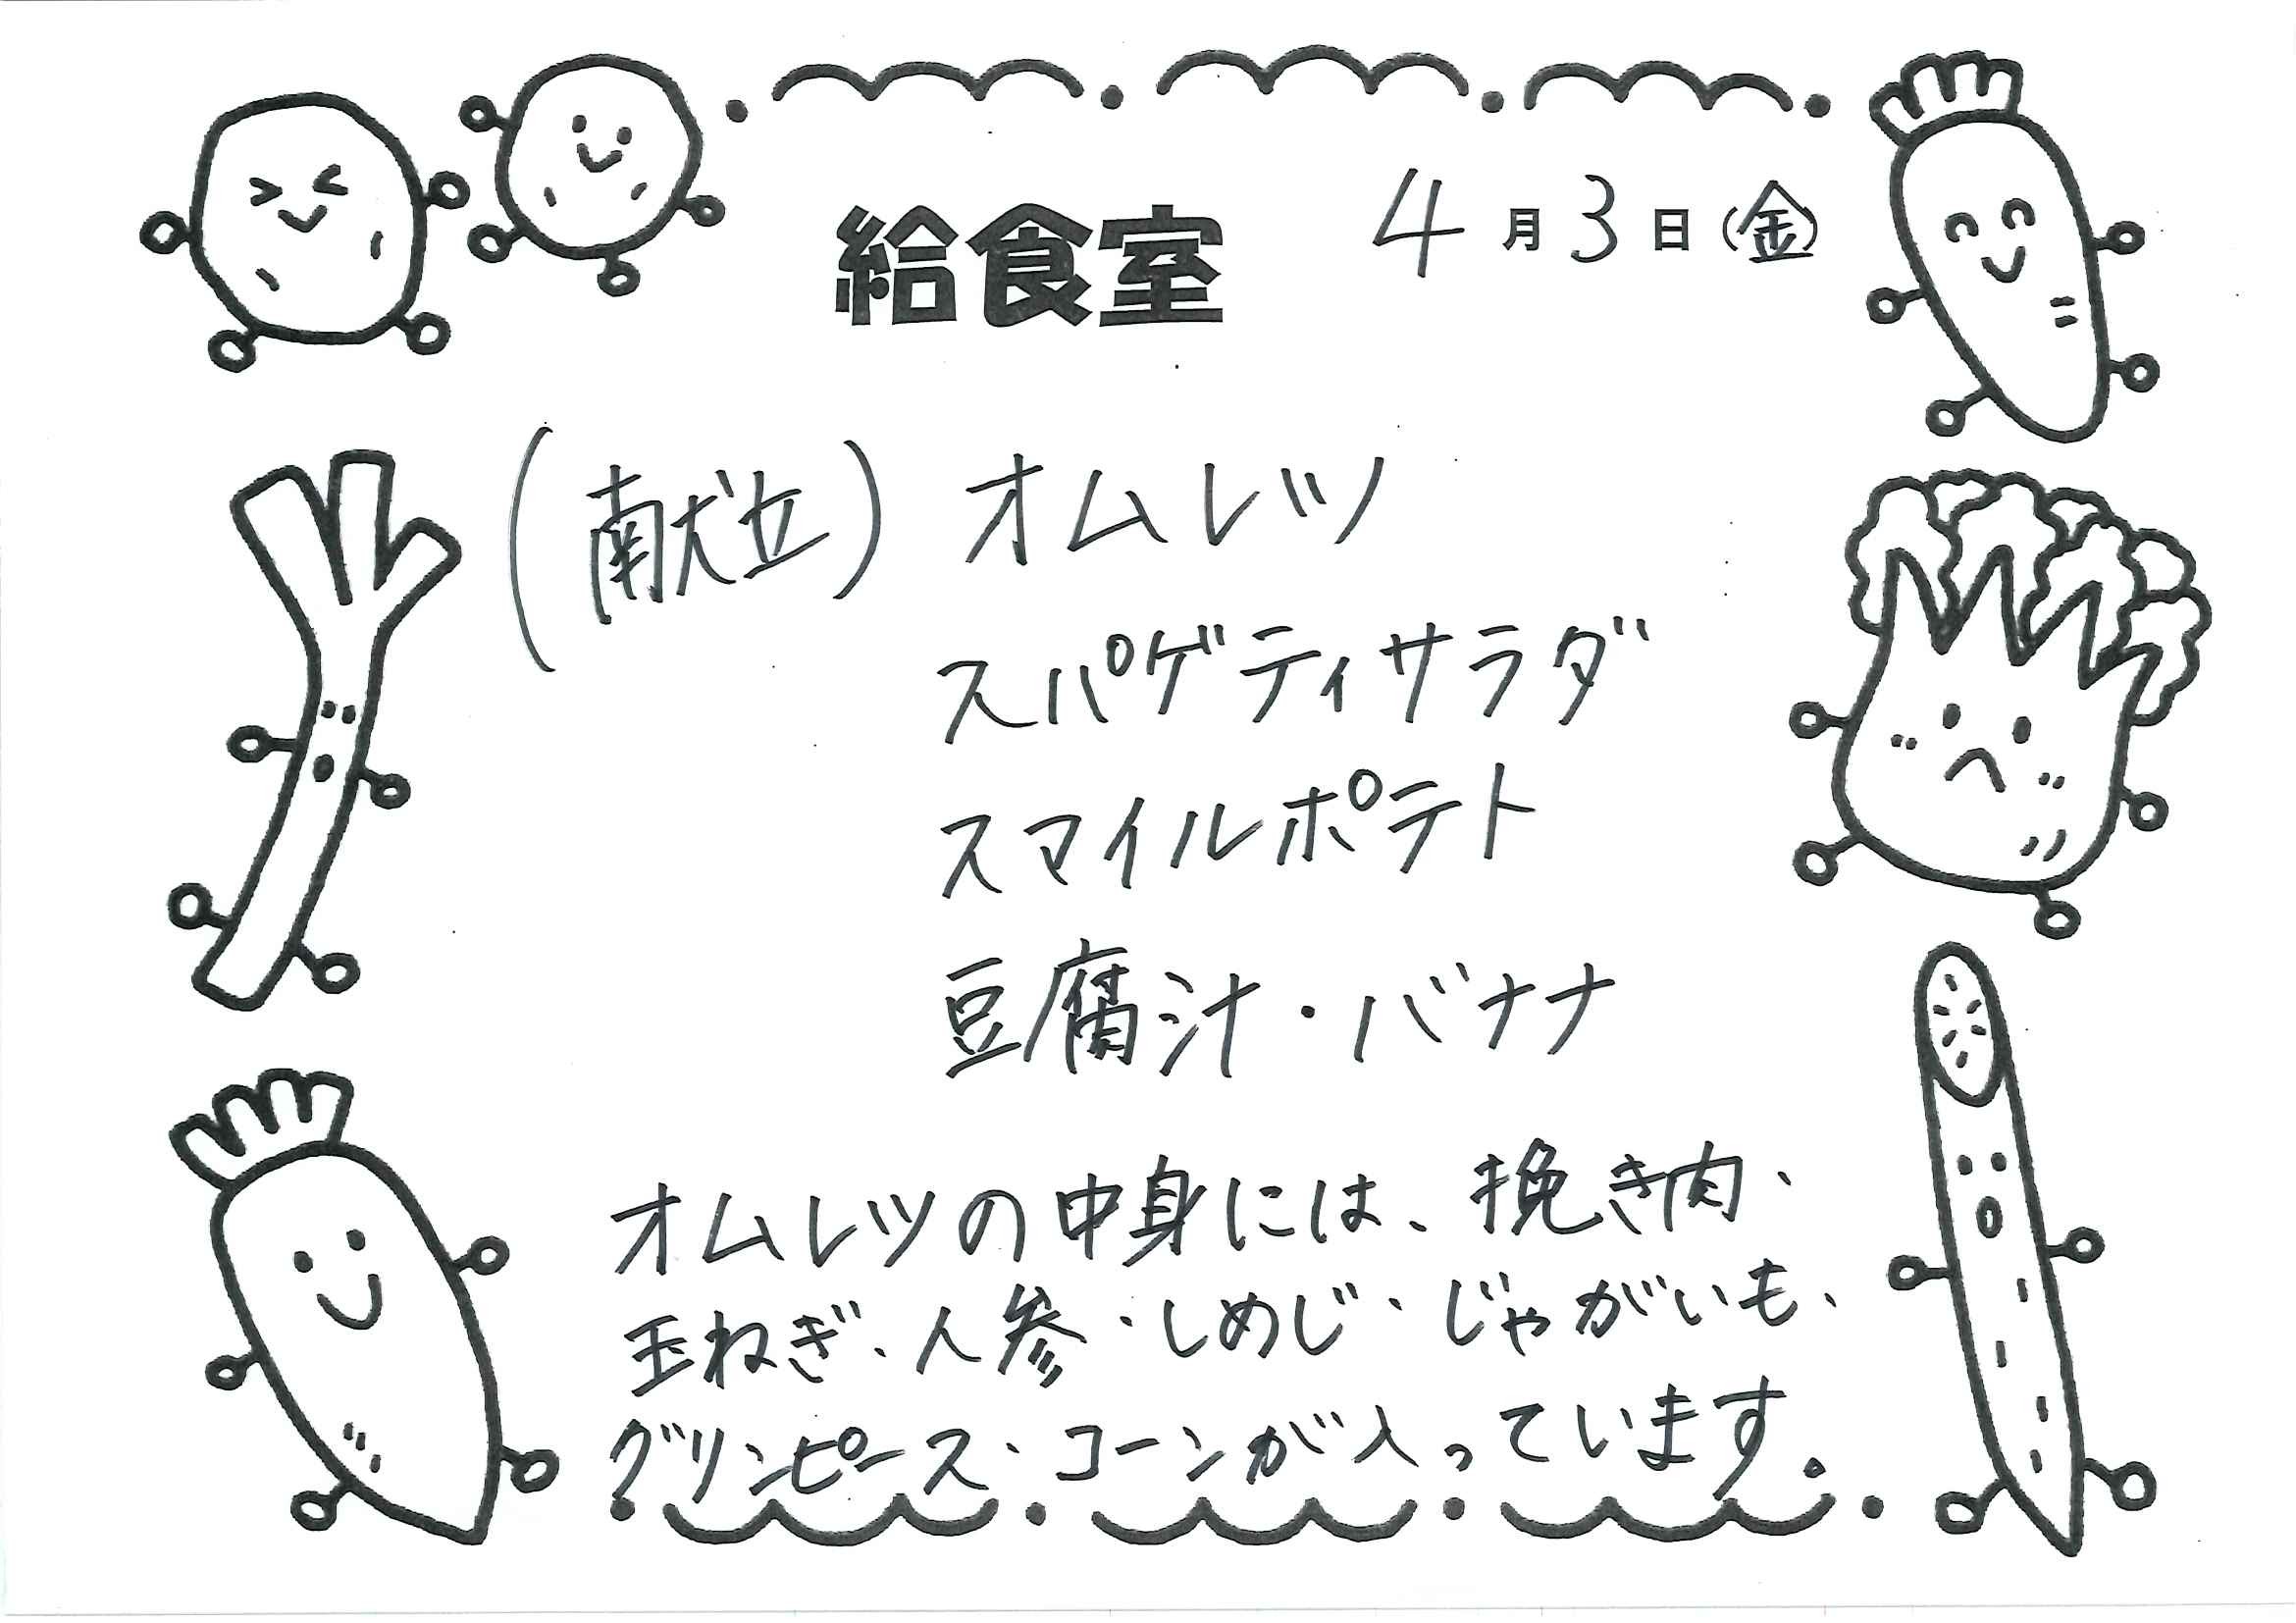 給食室
4月3日(金)
(献立) オムレツ
スパゲティサラダ
スマイルポテト
豆腐汁・バナナ
オムレツの中身には、挽き肉、
玉ねぎ、人参、しめじ、じゃがいも、
グリンピース、コーンが入っています。